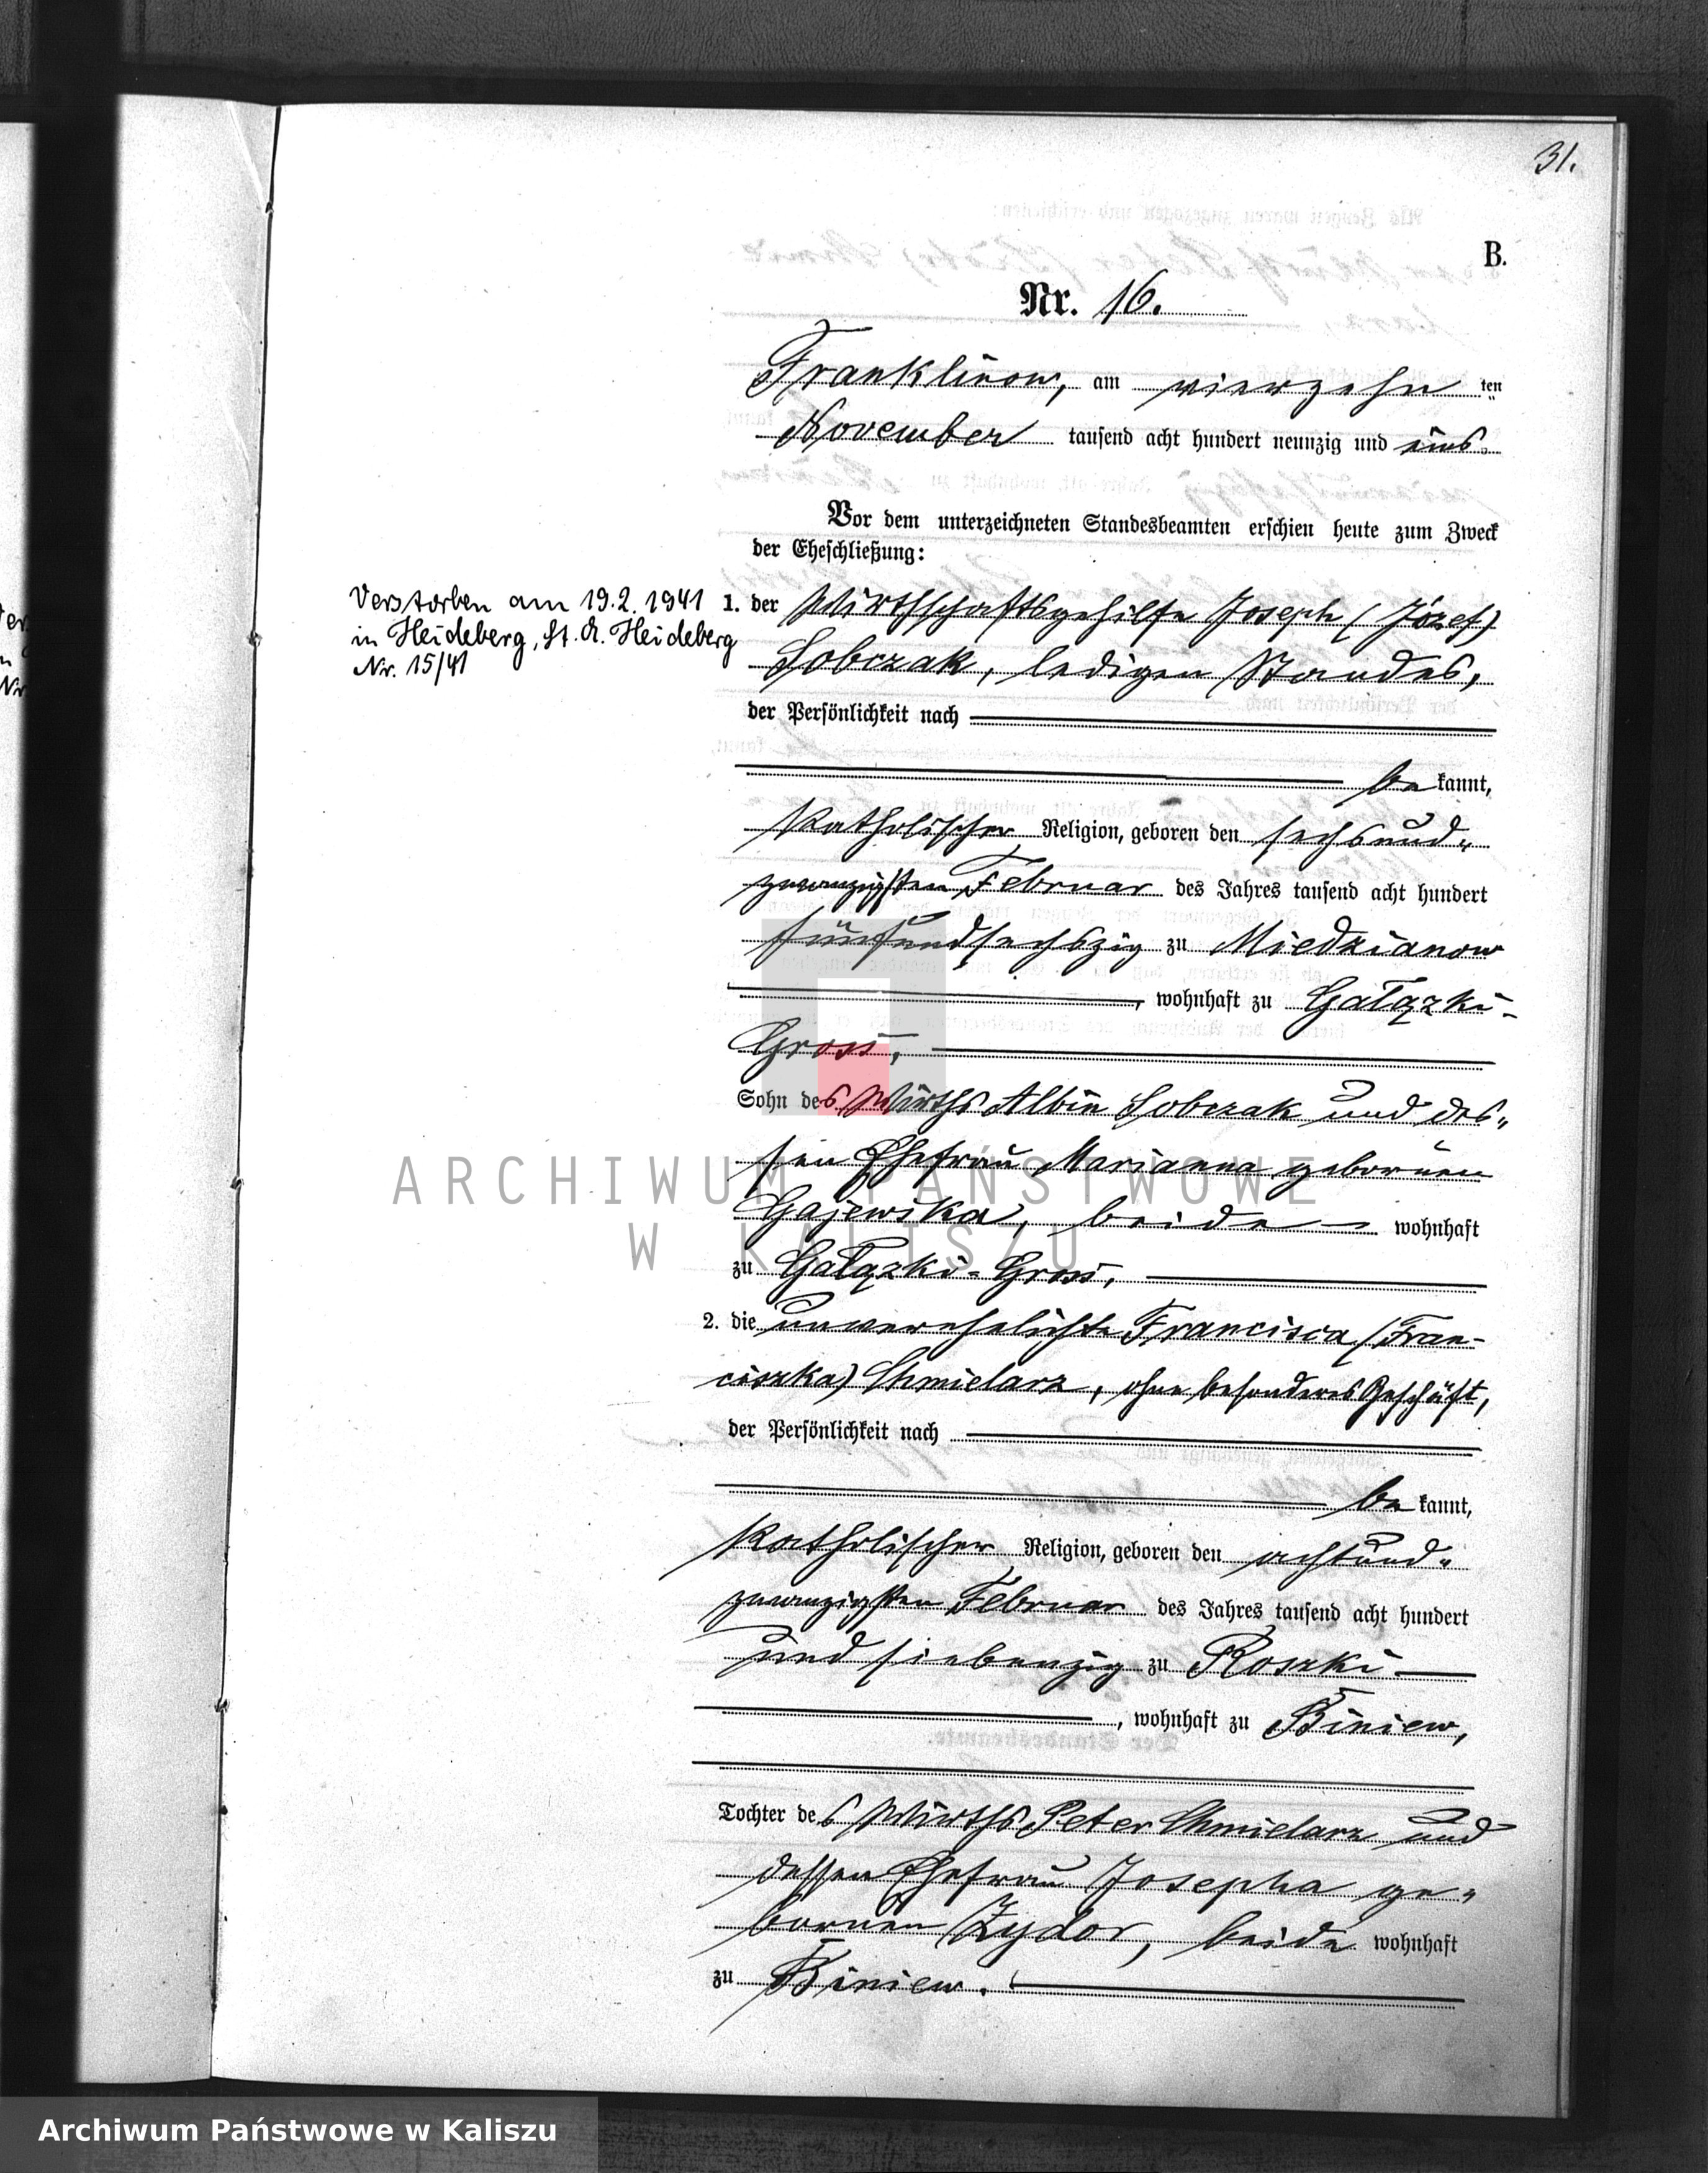 31.
B.
Nr. 16.
Franklinow, am vierzehn ten
November tausend acht hundert neunzig und eins.
Vor dem unterzeichneten Standesbeamten erschien heute zum Zweck
der Eheschließung:
1. der Wirthschaftsgehilfe Joseph (Józef)
Sobczak, ledigen Standes,
der Persönlichkeit nach
be kannt,
katholischer Religion, geboren den sechsund„
zwanzigsten Februar des Jahres tausend acht hundert
fünfundsechszig zu Miedzianow
, wohnhaft zu Gałązki-
Gross,
Sohn des Wirths Albin Sobczak und des„
sen Ehefrau Marianna gebornen
Gajewska, beide wohnhaft
zu Gałązki-Gross,
2. die unverehelichte Francisca (Fran-
ciszka) Chmielarz, ohne besonderes Geschäft,
der Persönlichkeit nach
be kannt,
katholischer Religion, geboren den achtund„
zwanzigsten Februar des Jahres tausend acht hundert
und siebenzig zu Roszki
, wohnhaft zu Biniew,
Tochter des Wirths Peter Chmielarz und
dessen Ehefrau Josepha ge„
bornen Zydor, beide wohnhaft
zu Biniew.
Verstorben am 19.2.1941
in Heideberg, St. A. Heideberg
Nr. 15/41
ARCHIWUM PAŃSTWOWE
W KALISZU
Archiwum Państwowe w Kaliszu